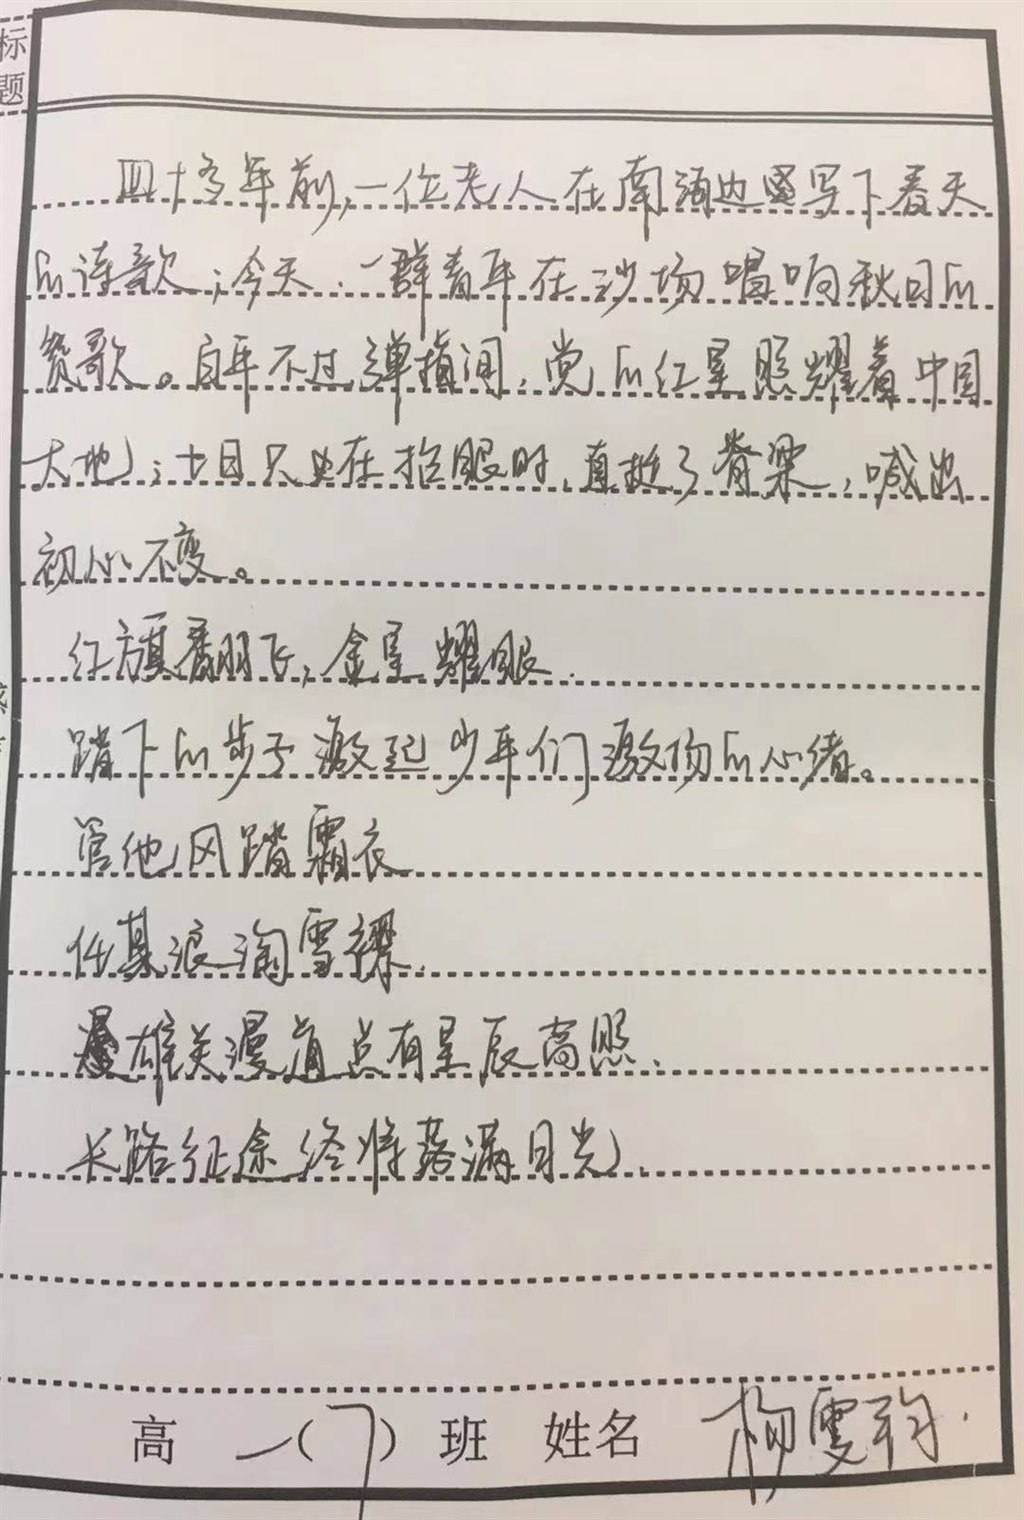 标
题
四十多年前,一位老人在南海边写下春天
的诗歌;今天,一群青年在沙场唱响秋日的
赞歌。百年不过弹指间,党的红星照耀着中国
大地;十日只在抬眼时,直挺了脊梁,喊出
初心不变。
红旗翻飞,金星耀眼.
踏下的步子激起少年们激扬的心绪。
管他风踏霜衣
任其浪淘雪襟.
雄关漫道总有星辰高照.
长路征途终将落满月光.
高 一(7)班 姓名 杨雯